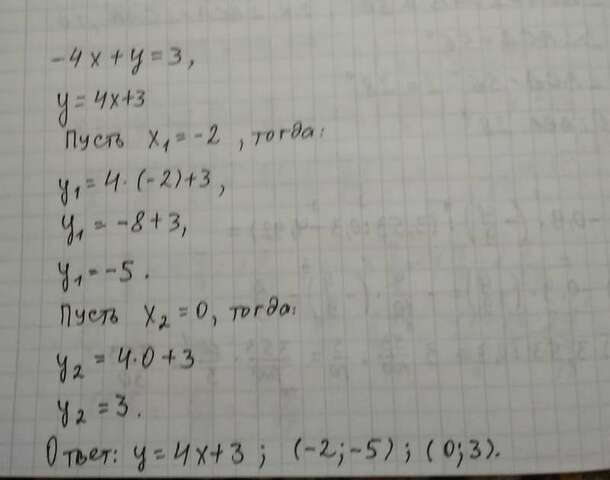 -4x+y=3,
y=4x+3
Пусть x₁=-2, тогда:
y₁=4·(-2)+3,
y₁=-8+3,
y₁=-5.
Пусть x₂=0, тогда:
y₂=4·0+3
y₂=3.
Ответ: y=4x+3; (-2;-5); (0;3).